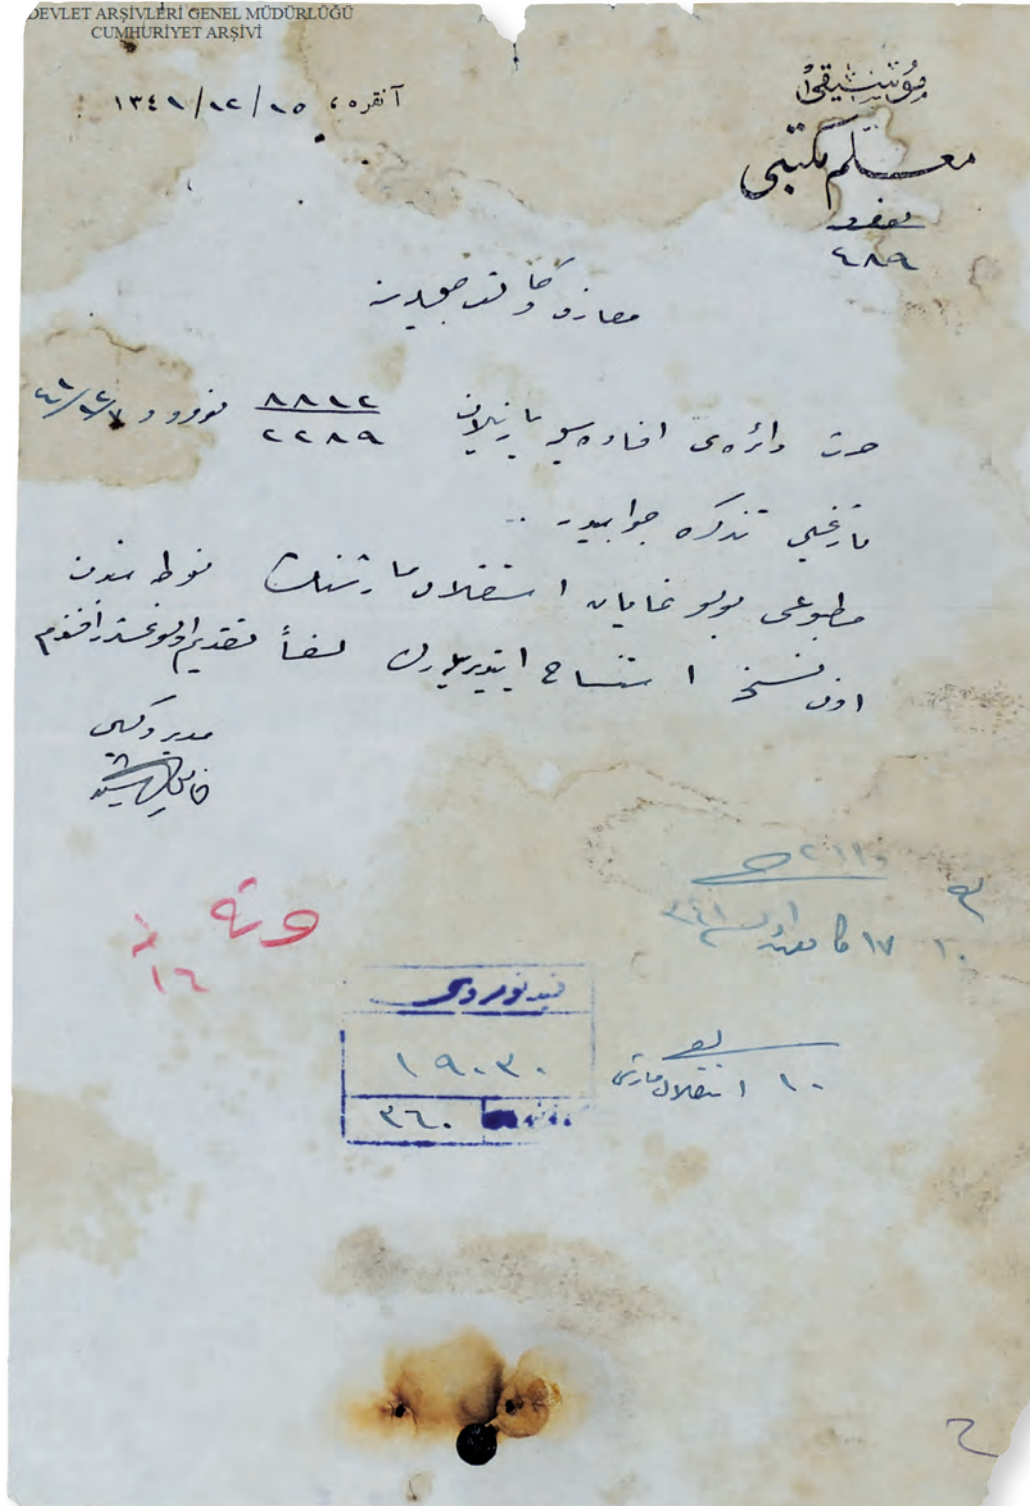 DEVLET ARŞİVLERİ GENEL MÜDÜRLÜĞÜ
CUMHURİYET ARŞİVİ
آنقره، ١٥/١٢/١٣٤١
موسيقى
معلم مكتبى
نومرو
٤٨٩
معارف وكالت جليله سنه
حرث دائره سى افاده سيله يازيلان ٨٨١٢ / ٢٢٨٩ نومرو و
تاريخلى تذكره جوابيدر
مطبوعى بولونمايان استقلال مارشنك نوطه سندن
اون نسخه استنساخ ايتديريله رك لفاً تقديم اولونمشدر افندم
مدير وكيلى
حرثه
١٦
١٧ كانون اول ٣٤١
قيد نومروسى
١٩٠٣٠
٣٦٠
١٠ استقلال مارشى
٢